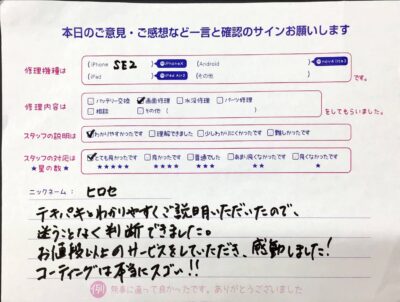 本日のご意見・ご感想など一言と確認のサインお願いします
修理機種は
(iPhone SE2 ) iPhoneX (Android ) nova lite2
(iPad ) iPad Air2 (その他 ) です。
修理内容は
□バッテリー交換 ☑画面修理 □水没修理 □パーツ修理
□相談 □その他( ) をしてもらいました。
スタッフの説明は ☑わかりやすかったです □理解できました □少しわかりにくかったです □難しかったです
スタッフの対応は ☑とても良かったです □良かったです □普通でした □あまり良くなかったです □良くなかったです
★星の数★ ★★★★★ ★★★★ ★★★ ★★ ★
ニックネーム: ヒロセ
テキパキとわかりやすくご説明いただいたので、
迷うことなく判断できました。
お値段以上のサービスをしていただき、感動しました!
コーティングは本当にスゴい!!
例 無事に直って良かったです。ありがとうございました